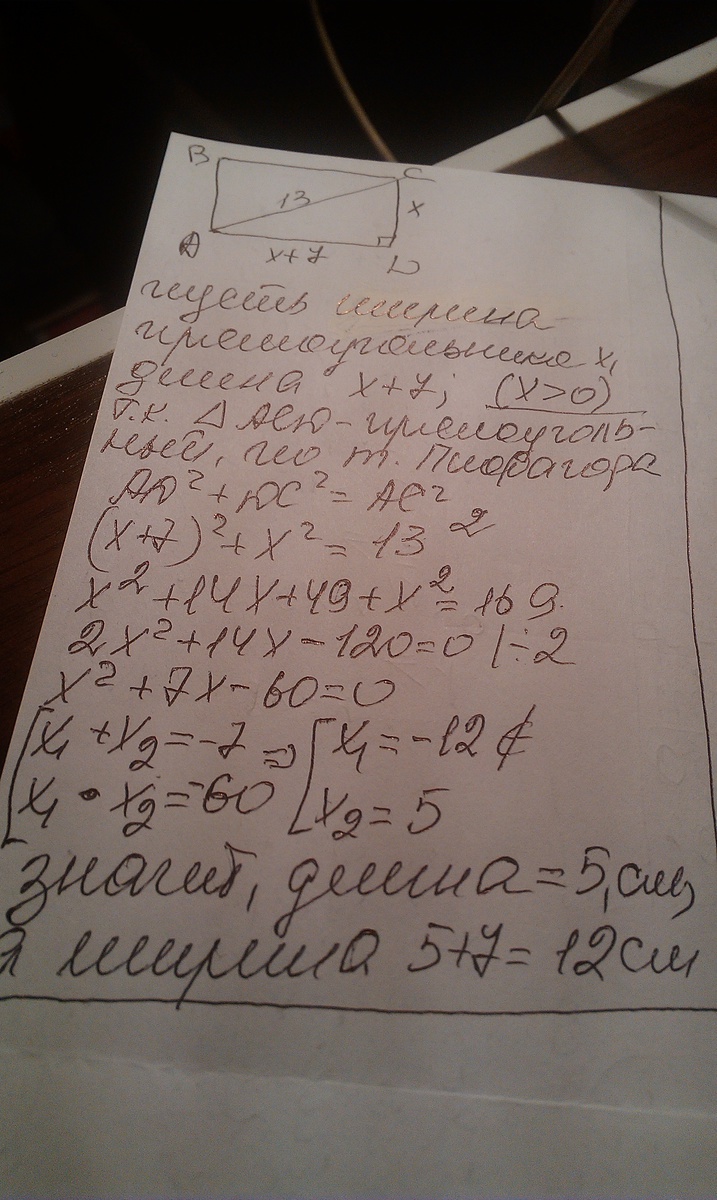 B C
13 x
A x+7 D
пусть ширина
прямоугольника x,
длина x+7; (x>0)
т.к. Δ АСD - прямоуголь-
ный, по т. Пифагора
АD² + DC² = AC²
(x+7)² + x² = 13²
x² + 14x + 49 + x² = 169.
2x² + 14x - 120 = 0 | ÷ 2
x² + 7x - 60 = 0
[x₁ + x₂ = -7 => [x₁ = -12 ∉
[x₁ • x₂ = -60 [x₂ = 5
значит, длина = 5, см,
а ширина 5+7 = 12 см